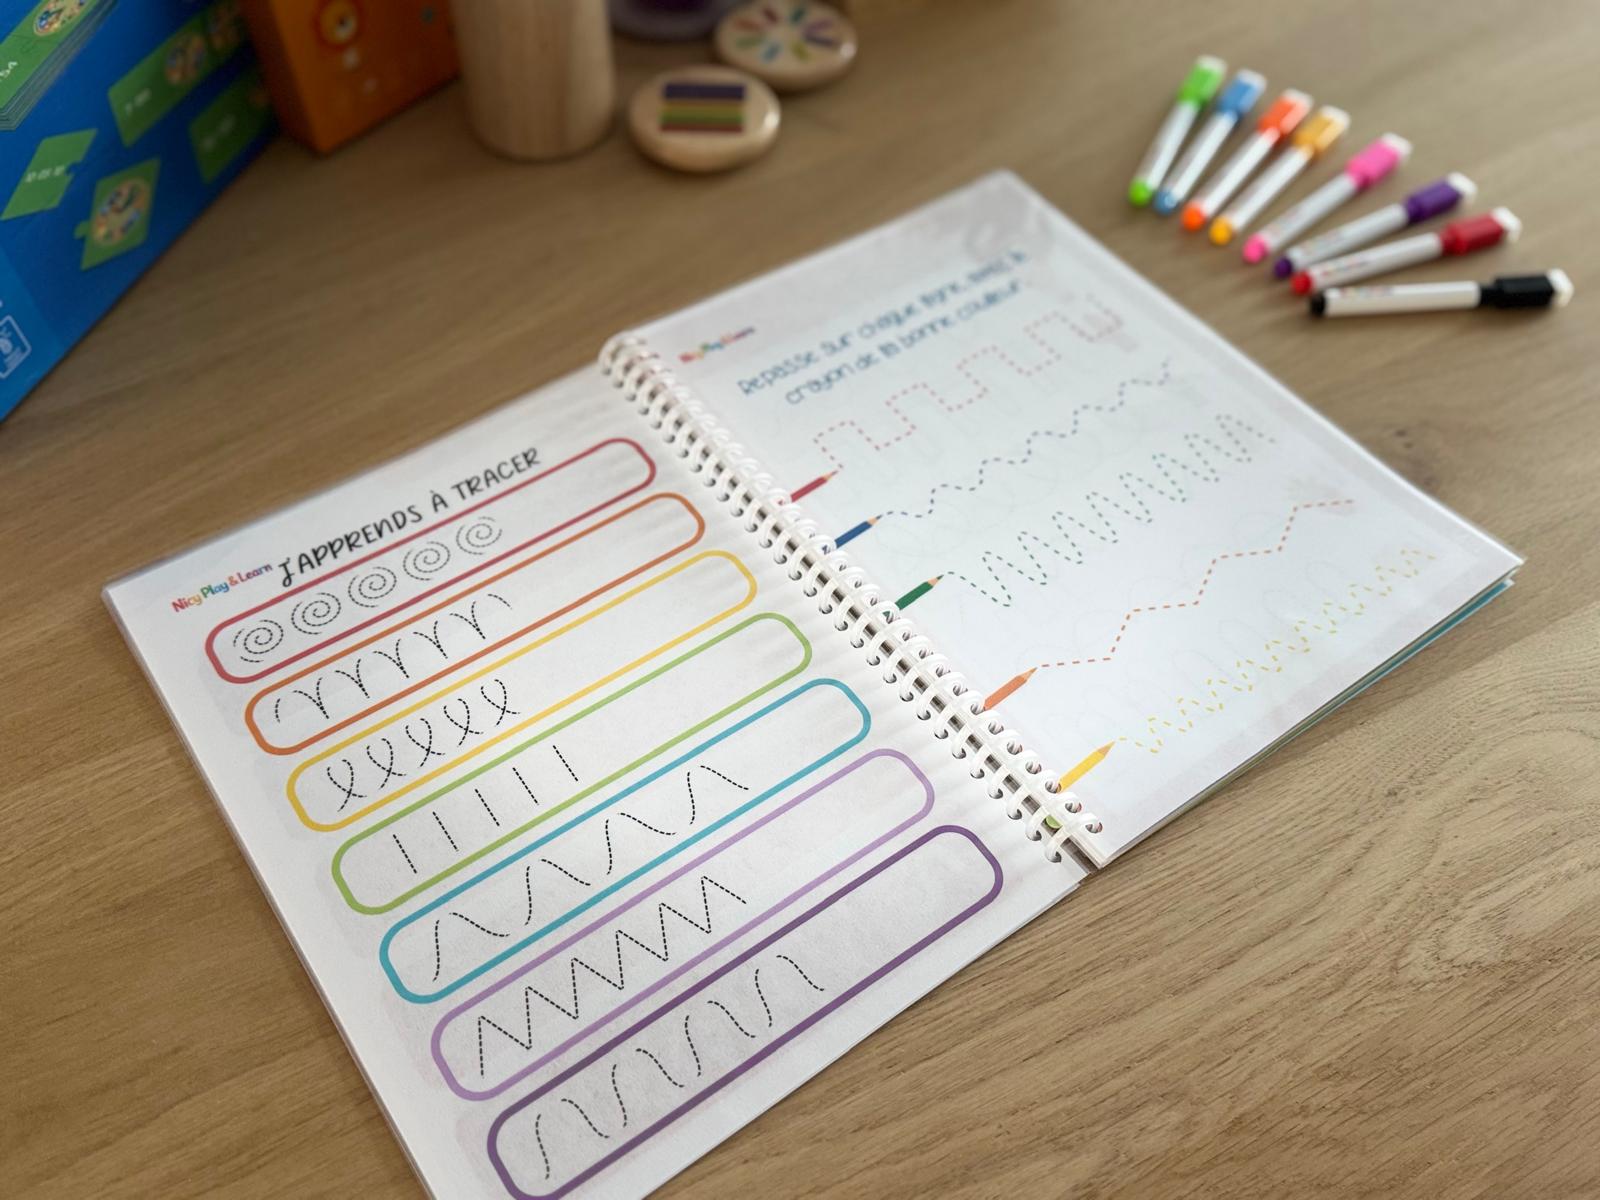 Nicy Play & Learn
J'APPRENDS À TRACER
Nicy Play & Learn
Repasse sur chaque ligne avec le
crayon de la bonne couleur.